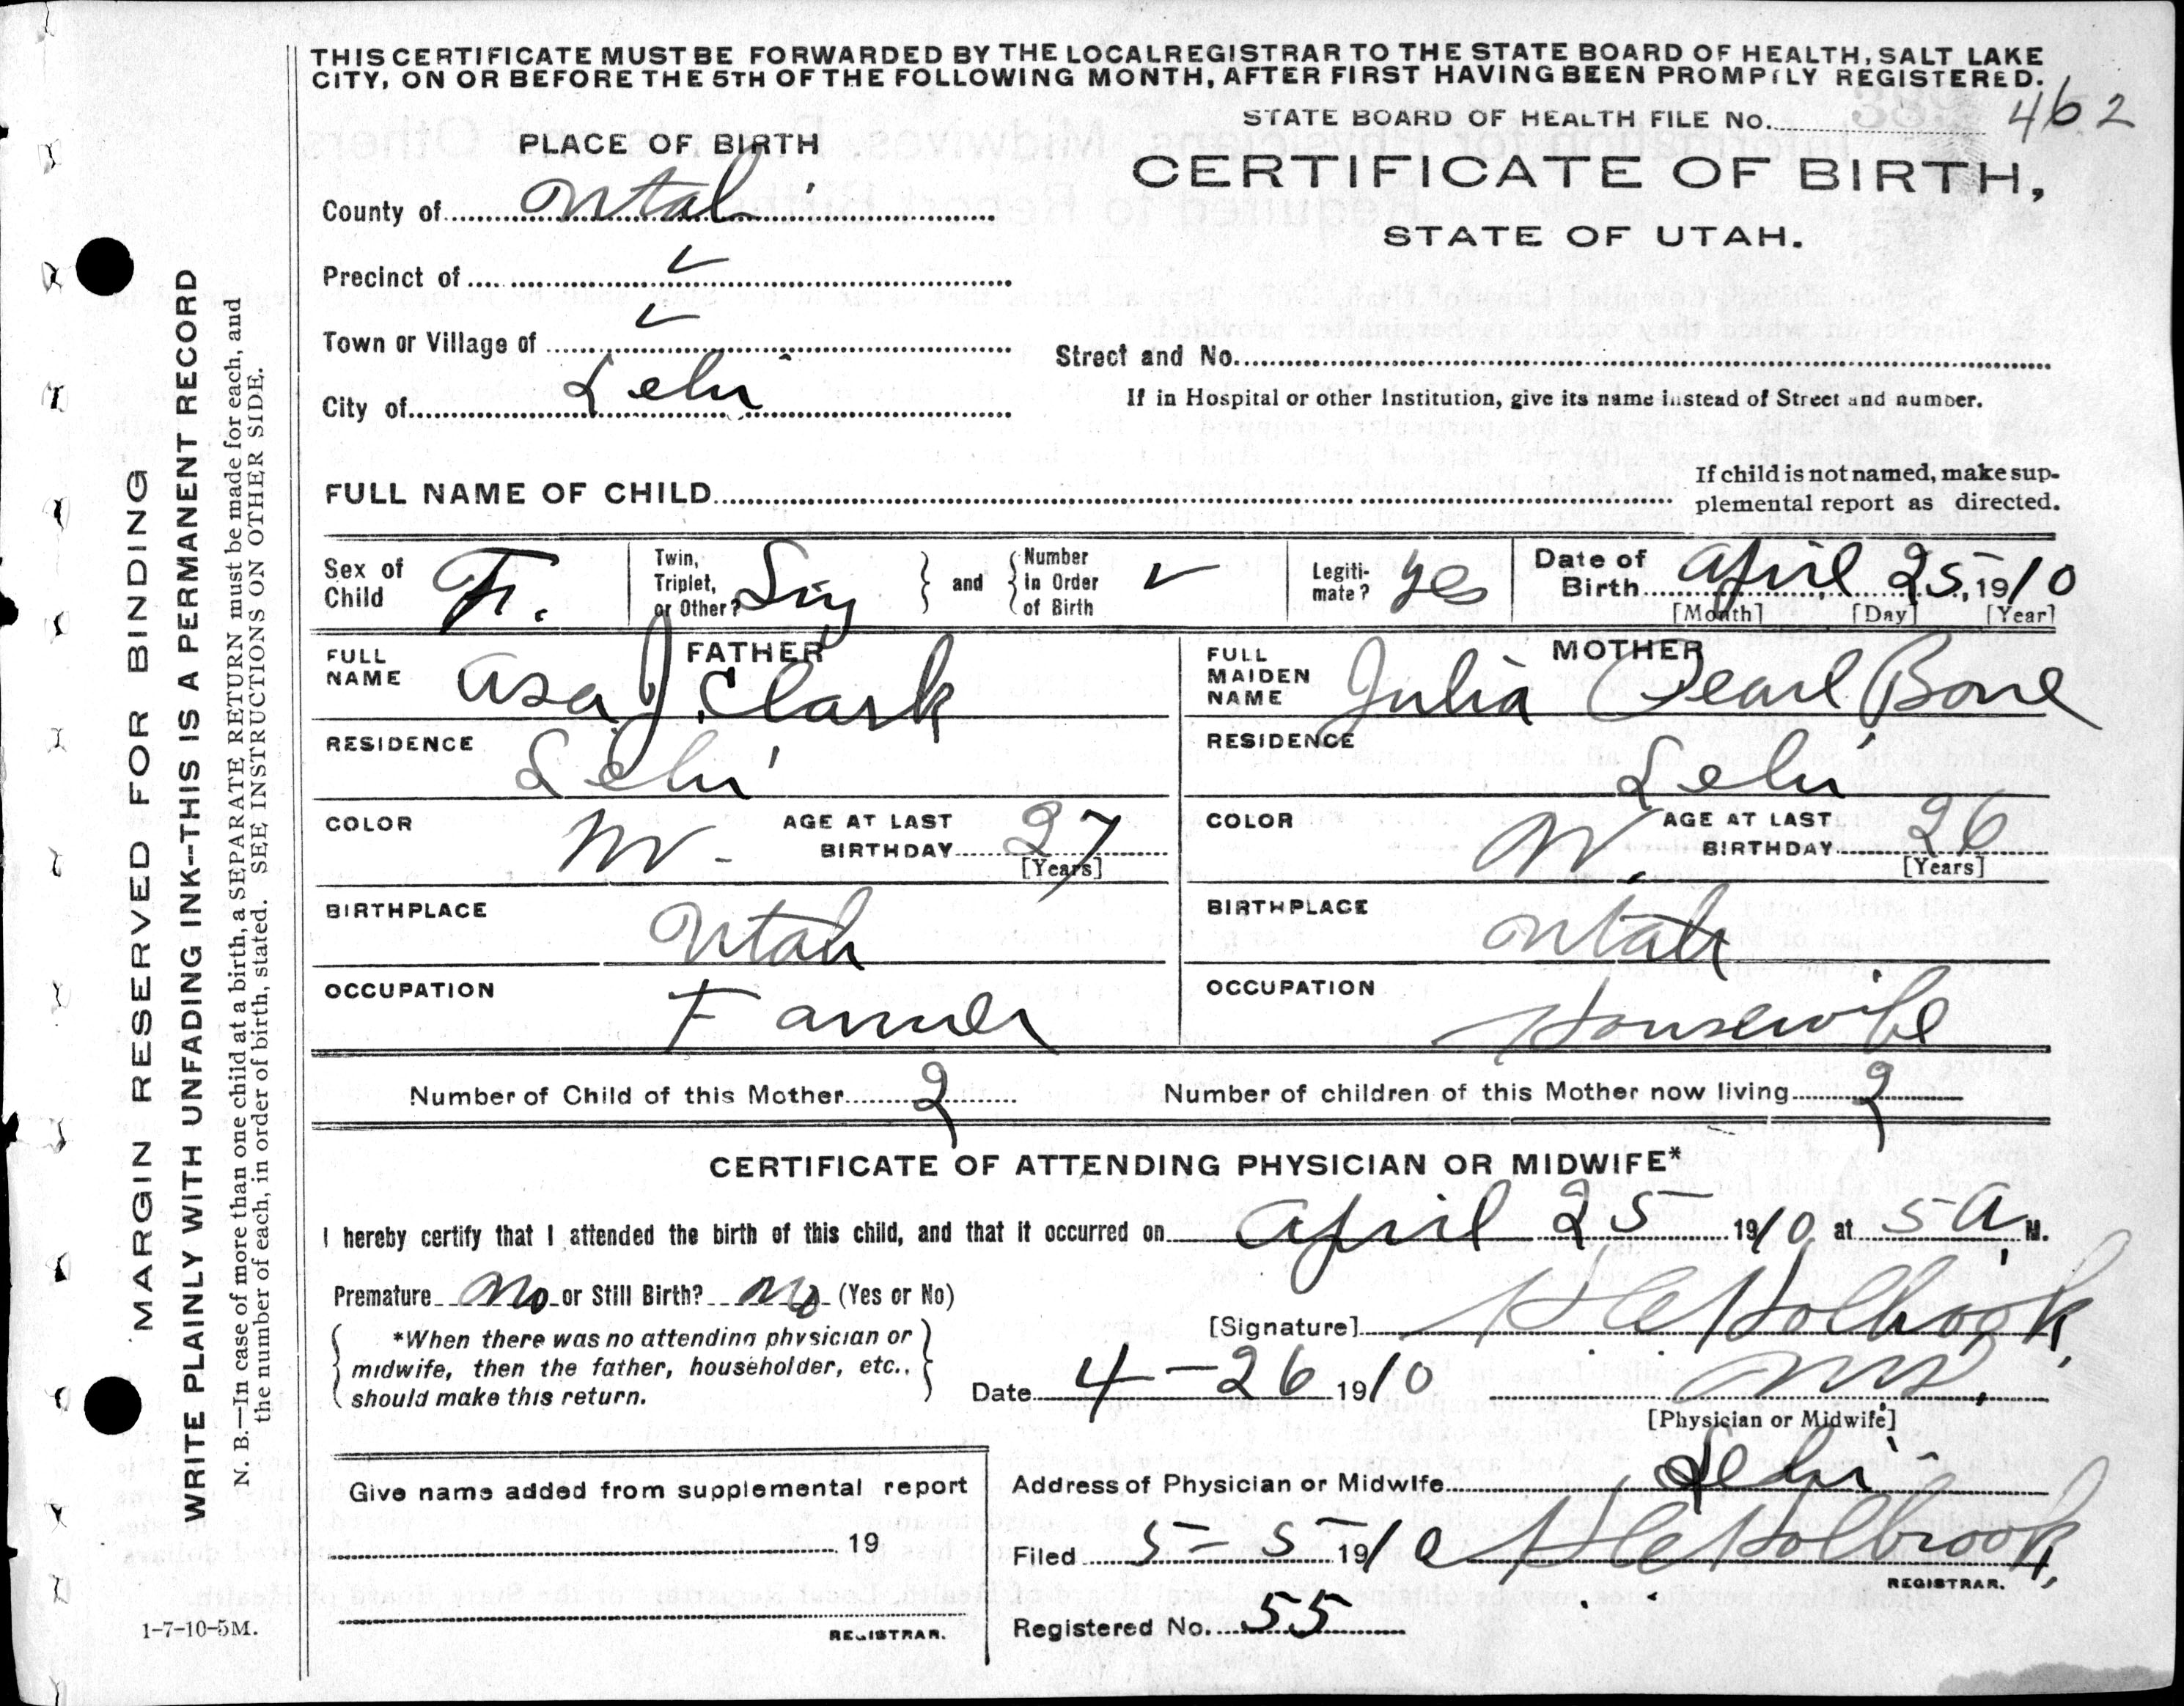 THIS CERTIFICATE MUST BE FORWARDED BY THE LOCAL REGISTRAR TO THE STATE BOARD OF HEALTH, SALT LAKE
CITY, ON OR BEFORE THE 5TH OF THE FOLLOWING MONTH, AFTER FIRST HAVING BEEN PROMPTLY REGISTERED.
STATE BOARD OF HEALTH FILE No. 462
PLACE OF BIRTH
CERTIFICATE OF BIRTH,
STATE OF UTAH.
County of Utah
Precinct of ✓
Town or Village of ✓
Street and No.
City of Lehi
If in Hospital or other Institution, give its name instead of Street and number.
FULL NAME OF CHILD
If child is not named, make sup-
plemental report as directed.
Sex of Child F.
Twin, Triplet, or Other? Sing
and Number in Order of Birth ✓
Legiti-mate? Yes
Date of Birth April 25, 1910
[Month] [Day] [Year]
FATHER
FULL NAME Asa J. Clark
MOTHER
FULL MAIDEN NAME Julia Pearl Bone
RESIDENCE Lehi
RESIDENCE Lehi
COLOR W. AGE AT LAST BIRTHDAY 27 [Years]
COLOR W. AGE AT LAST BIRTHDAY 26 [Years]
BIRTHPLACE Utah
BIRTHPLACE Utah
OCCUPATION Farmer
OCCUPATION Housewife
Number of Child of this Mother 2 Number of children of this Mother now living 2
CERTIFICATE OF ATTENDING PHYSICIAN OR MIDWIFE*
I hereby certify that I attended the birth of this child, and that it occurred on April 25 1910, at 5 A. M.
Premature No or Still Birth? No (Yes or No)
*When there was no attending physician or
midwife, then the father, householder, etc.,
should make this return.
[Signature] Holbrook,
Date 4-26 1910 MD.
[Physician or Midwife]
Give name added from supplemental report
19
REGISTRAR.
Address of Physician or Midwife Lehi
Filed 5-5 1910 Holbrook,
REGISTRAR.
Registered No. 55
MARGIN RESERVED FOR BINDING
WRITE PLAINLY WITH UNFADING INK--THIS IS A PERMANENT RECORD
N. B.—In case of more than one child at a birth, a SEPARATE RETURN must be made for each, and
the number of each, in order of birth, stated. SEE INSTRUCTIONS ON OTHER SIDE.
1-7-10-5M.